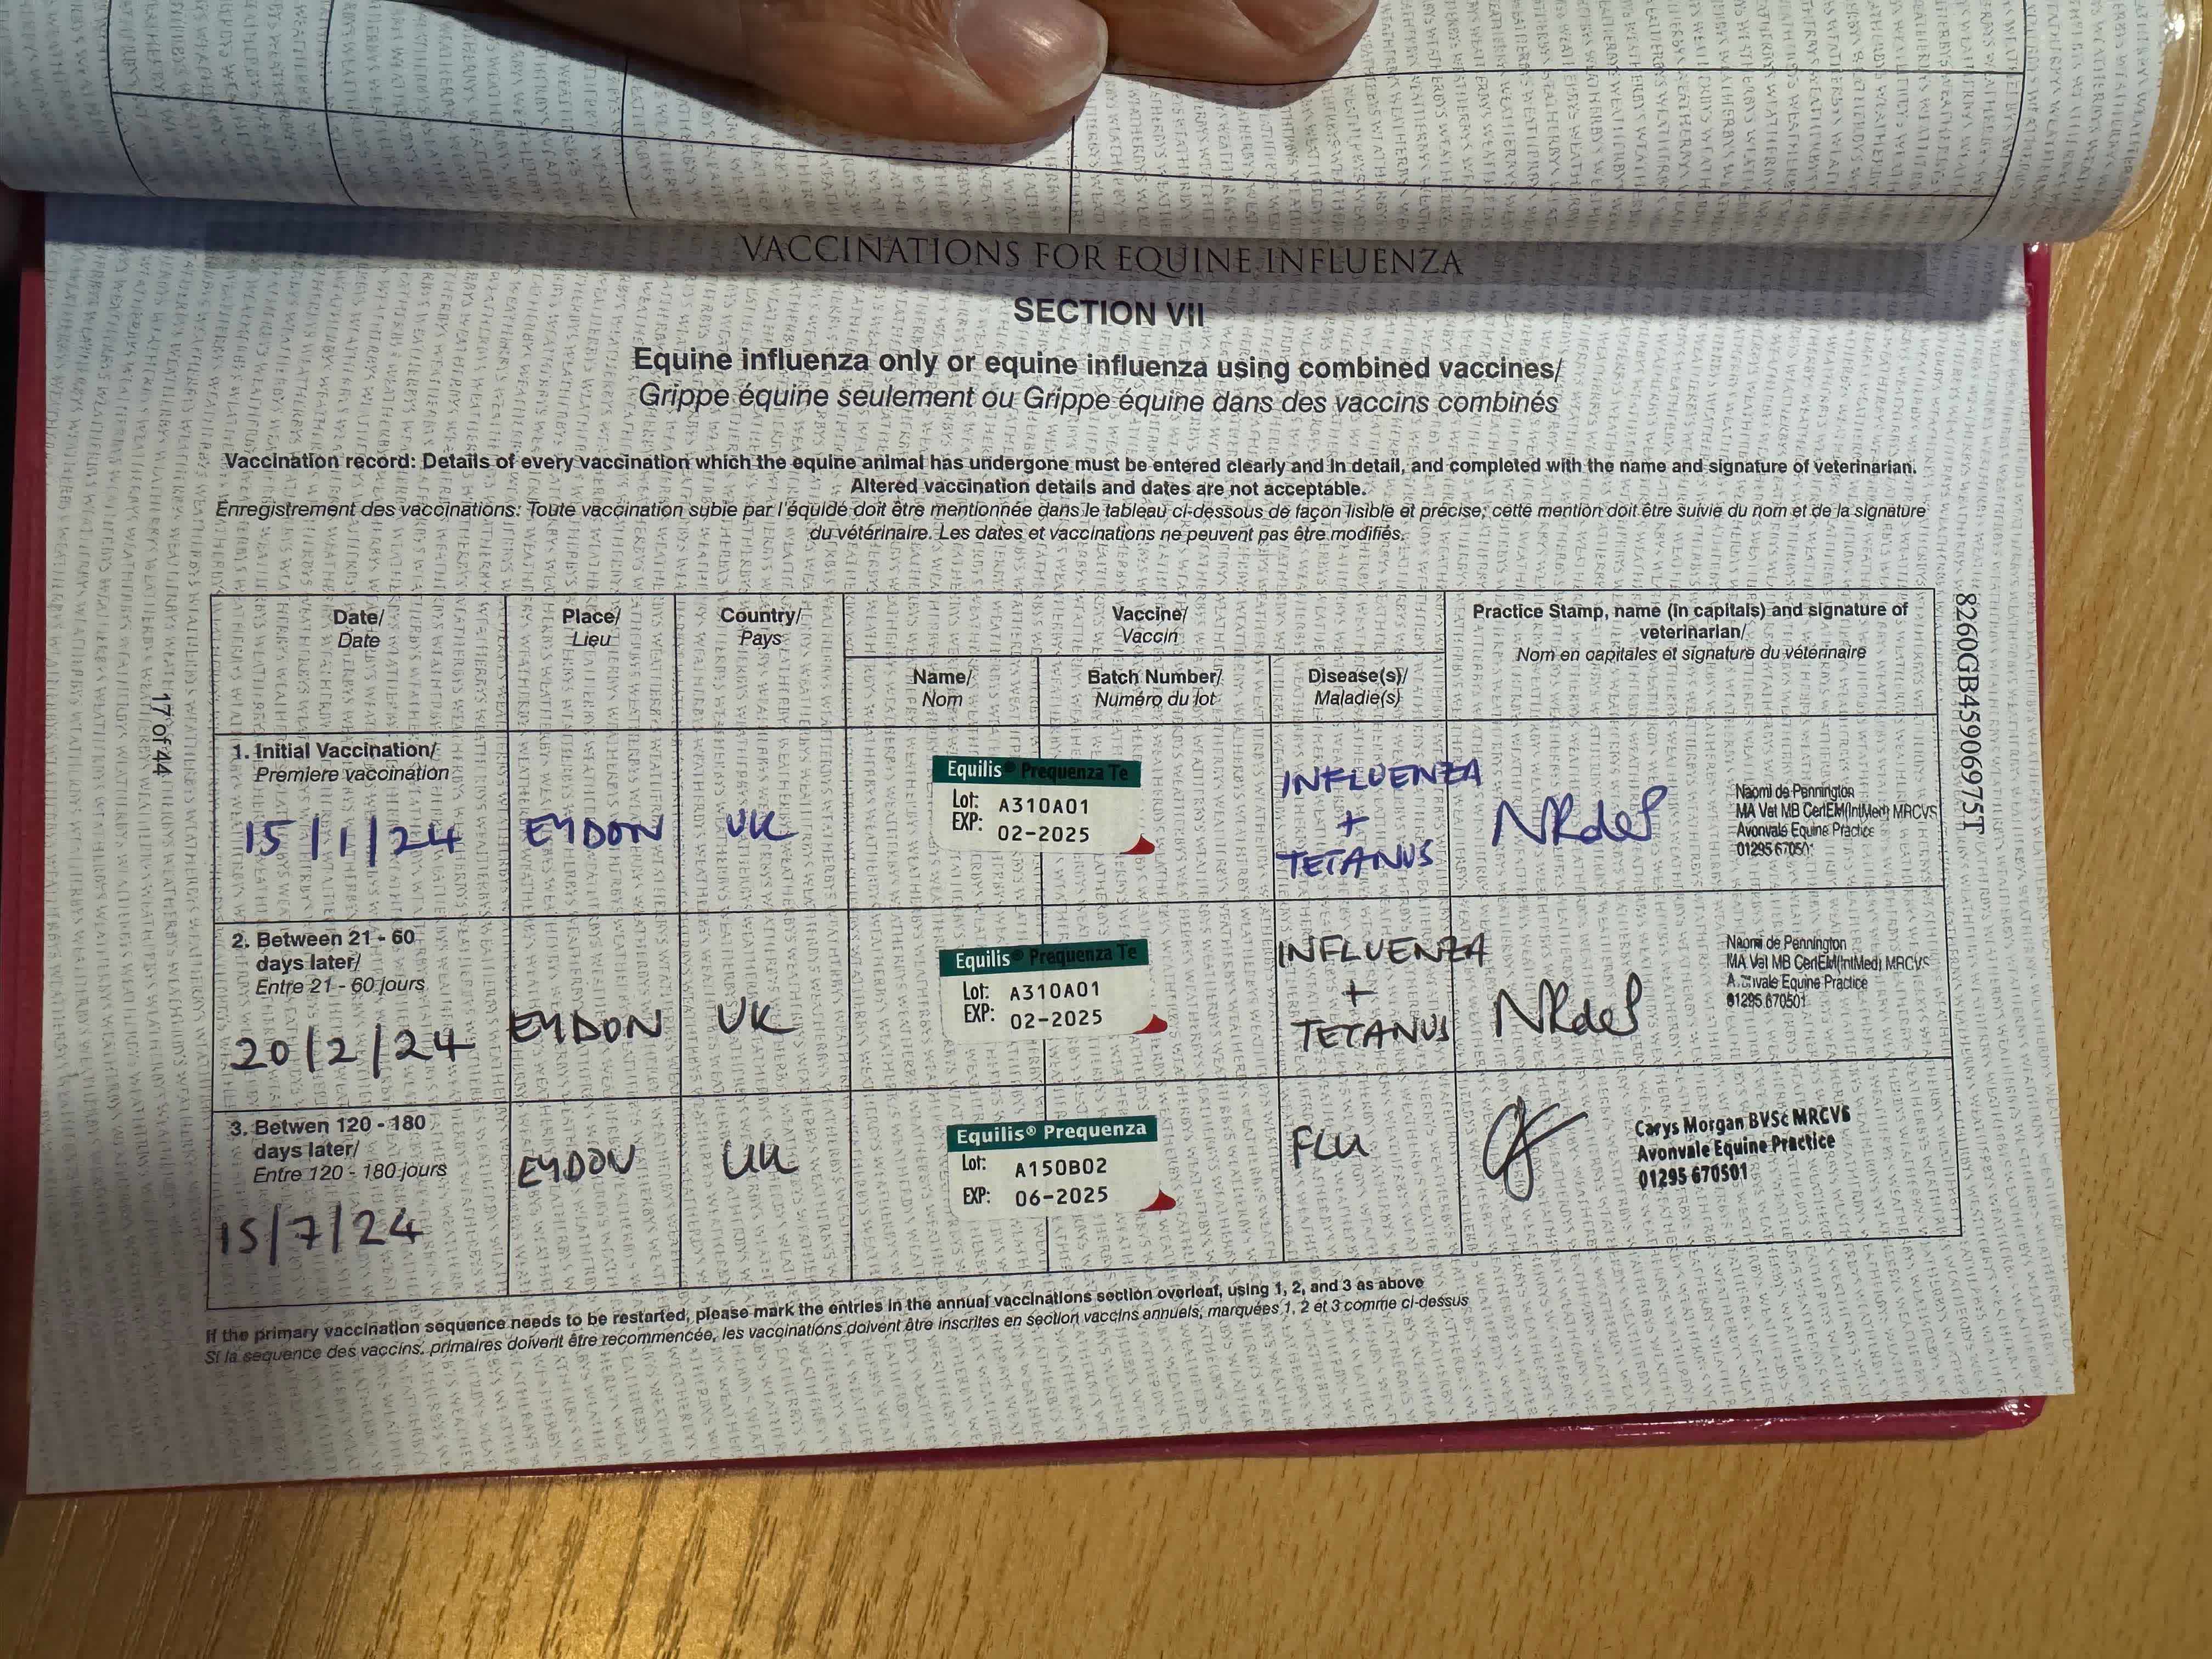 VACCINATIONS FOR EQUINE INFLUENZA
SECTION VII
Equine influenza only or equine influenza using combined vaccines/
Grippe équine seulement ou Grippe équine dans des vaccins combinés
Vaccination record: Details of every vaccination which the equine animal has undergone must be entered clearly and in detail, and completed with the name and signature of veterinarian.
Altered vaccination details and dates are not acceptable.
Enregistrement des vaccinations: Toute vaccination subie par l'équidé doit être mentionnée dans le tableau ci-dessous de façon lisible et précise; cette mention doit être suivie du nom et de la signature
du vétérinaire. Les dates et vaccinations ne peuvent pas être modifiés.
Date/
Date
Place/
Lieu
Country/
Pays
Vaccine/
Vaccin
Practice Stamp, name (in capitals) and signature of
veterinarian/
Nom en capitales et signature du véterinaire
Name/
Nom
Batch Number/
Numéro du lot
Disease(s)/
Maladie(s)
1. Initial Vaccination/
Premiere vaccination
15/1/24
EYDON
UK
Equilis® Prequenza Te
Lot: A310A01
EXP: 02-2025
INFLUENZA
+
TETANUS
NRdeP
Naomi de Pennington
MA Vet MB CertEM(IntMed) MRCVS
Avonvale Equine Practice
2. Between 21 - 60
days later/
Entre 21 - 60 jours
20/2/24
EYDON
UK
Equilis® Prequenza Te
Lot: A310A01
EXP: 02-2025
INFLUENZA
+
TETANUS
NRdeP
Naomi de Pennington
MA Vet MB CertEM(IntMed) MRCVS
Equine Practice
01295 670501
3. Betwen 120 - 180
days later/
Entre 120 - 180 jours
15/7/24
EYDON
UK
Equilis® Prequenza
Lot: A150B02
EXP: 06-2025
FLU
Carys Morgan BVSc MRCVS
Avonvale Equine Practice
01295 670501
If the primary vaccination sequence needs to be restarted, please mark the entries in the annual vaccinations section overleaf, using 1, 2, and 3 as above
Si la sequence des vaccins, primaires doivent être recommencée, les vaccinations doivent être inscrites en section vaccins annuels, marquées 1, 2 et 3 comme ci-dessus
17 of 44
8260GB45906975T